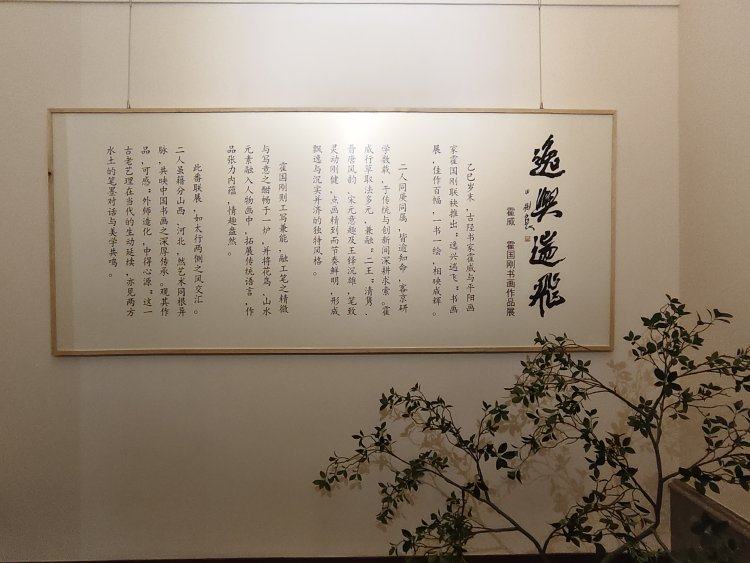 逸兴遄飞
霍威 霍国刚书画作品展
乙巳岁末，古陉书家霍威与平阳画
家霍国刚联袂推出“逸兴遄飞”书画
展，佳作百幅，一书一绘，相映成辉。
二人同庚同属，皆逾知命，客京研
学数载，于传统与创新间深耕求索。霍
威行草取法多元，兼融“二王”清隽、
晋唐风韵、宋元意趣及王铎沉雄，笔致
灵动刚健，点画精到而节奏鲜明，形成
飘逸与沉实并济的独特风格。
霍国刚则工写兼能，融工笔之精微
与写意之酣畅于一炉，并将花鸟、山水
元素融入人物画中，拓展传统语言，作
品张力内蕴，情趣盎然。
此番联展，如太行两侧之风交汇。
二人虽籍分山西、河北，然艺术同根异
脉，共映中国书画之深厚传承。观其作
品，可感“外师造化，中得心源”这一
古老艺理在当代的生动延续，亦见两方
水土的笔墨对话与美学共鸣。